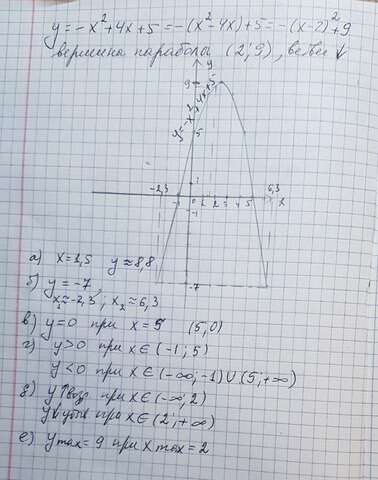 y=-x²+4x+5=-(x²-4x)+5=-(x-2)²+9
вершина параболы (2;9), ветви ↓
y
9
y=-x²+4x+5
5
1
-2,3
-1
1
2
3
5
6,3
x
-1
-7
а) x=1,5 y≈8,8
б) y=-7,
x₁≈-2,3; x₂≈6,3
в) y=0 при x=5 (5,0)
г) y>0 при x∈(-1;5)
y<0 при x∈(-∞;-1)∪(5;+∞)
д) y↑возр при x∈(-∞;2)
y↓убыв при x∈(2;+∞)
е) y max=9 при x max=2